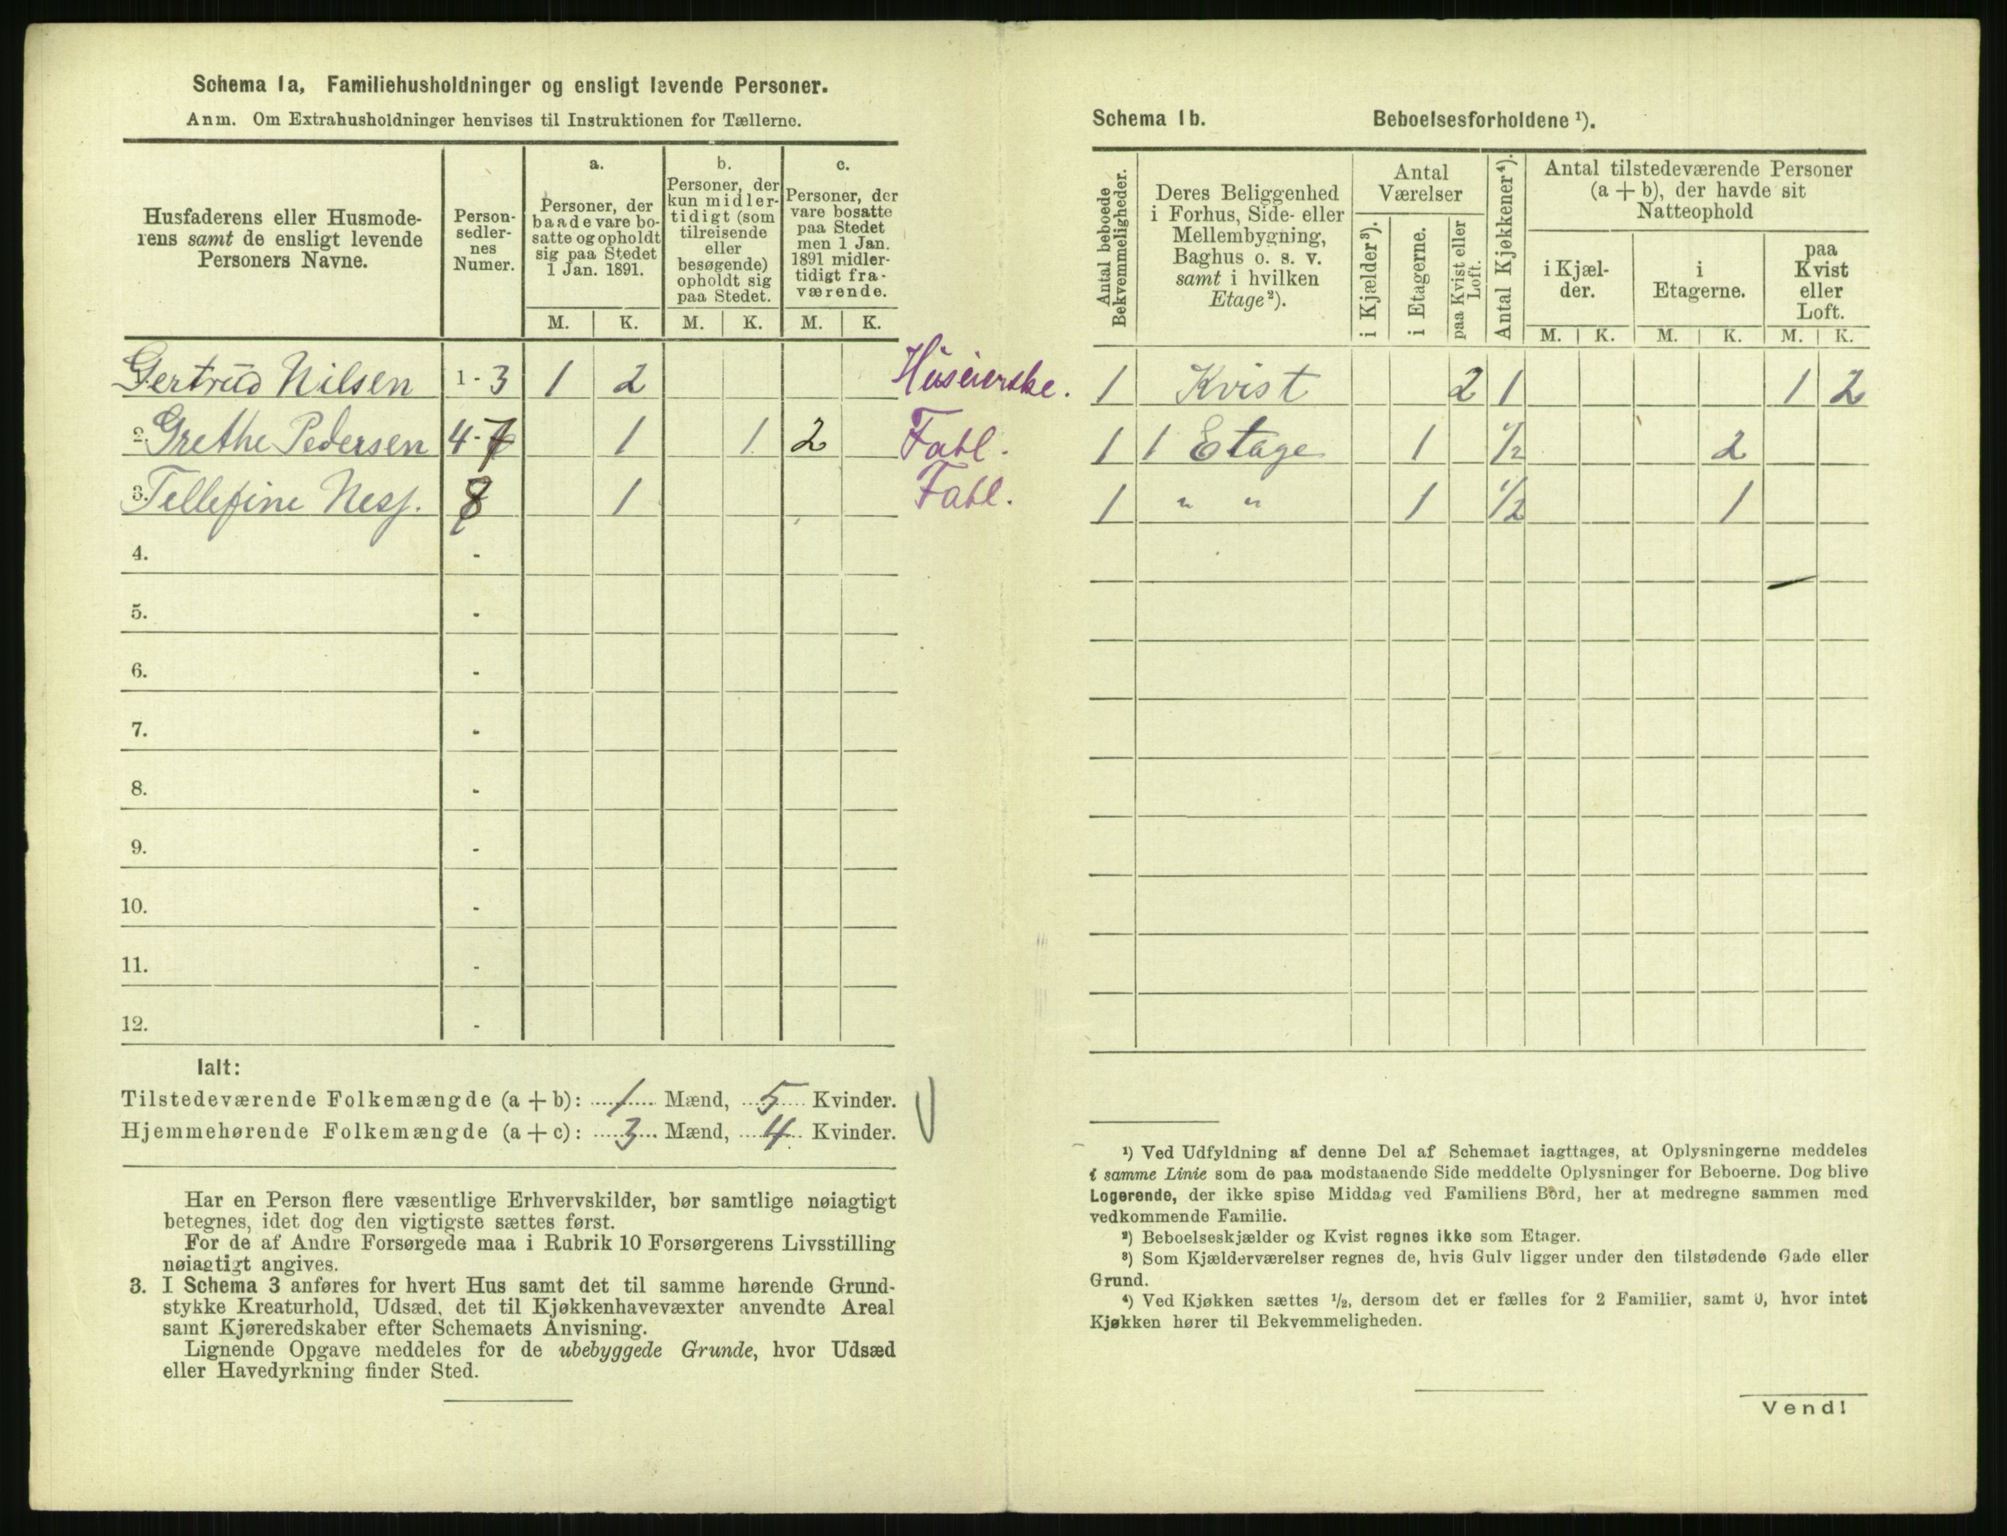 Schema 1a, Familiehusholdninger og ensligt levende Personer.
Anm. Om Extrahusholdninger henvises til Instruktionen for Tællerne.
Husfaderens eller Husmode-
rens samt de ensligt levende
Personers Navne.
Person-
sedler-
nes
Numer.
a.
Personer, der
baade vare bo-
satte og opholdt
sig paa Stedet
1 Jan. 1891.
b.
Personer, der
kun midler-
tidigt (som
tilreisende
eller
besøgende)
opholdt sig
paa Stedet.
c.
Personer, der
vare bosatte
paa Stedet
men 1 Jan.
1891 midler-
tidigt fra-
værende.
M. K. M. K. M. K.
Gertrud Nilsen 1 - 3 1 2 Huseierske.
2 Grethe Pedersen 4-7 1 1 2 Fatl.
3. Tellefine Nesj. 8 1 Fatl.
4. -
5. -
6. -
7. -
8. -
9. -
10. -
11. -
12. -
Ialt:
Tilstedeværende Folkemængde (a + b): 1 Mænd, 5 Kvinder.
Hjemmehørende Folkemængde (a + c): 3 Mænd, 4 Kvinder.
Har en Person flere væsentlige Erhvervskilder, bør samtlige nøiagtigt
betegnes, idet dog den vigtigste sættes først.
For de af Andre Forsørgede maa i Rubrik 10 Forsørgerens Livsstilling
nøiagtigt angives.
3. I Schema 3 anføres for hvert Hus samt det til samme hørende Grund-
stykke Kreaturhold, Udsæd, det til Kjøkkenhavevæxter anvendte Areal
samt Kjøreredskaber efter Schemaets Anvisning.
Lignende Opgave meddeles for de ubebyggede Grunde, hvor Udsæd
eller Havedyrkning finder Sted.
Schema 1b. Beboelsesforholdene ¹).
Antal beboede
Bekvemmeligheder.
Deres Beliggenhed
i Forhus, Side- eller
Mellembygning,
Baghus o. s. v.
samt i hvilken
Etage ²).
Antal
Værelser
i Kjælder ³).
i Etagerne.
paa Kvist eller
Loft.
Antal Kjøkkener ⁴).
Antal tilstedeværende Personer
(a + b), der havde sit
Natteophold
i Kjæl-
der.
i
Etagerne.
paa
Kvist
eller
Loft.
M. K. M. K. M. K.
1 Kvist 2 1 1 2
1 1 Etage 1 1/2 2
1 " " 1 1/2 1
¹) Ved Udfyldning af denne Del af Schemaet iagttages, at Oplysningerne meddeles
i samme Linie som de paa modstaaende Side meddelte Oplysninger for Beboerne. Dog blive
Logerende, der ikke spise Middag ved Familiens Bord, her at medregne sammen med
vedkommende Familie.
²) Beboelseskjælder og Kvist regnes ikke som Etager.
³) Som Kjælderværelser regnes de, hvis Gulv ligger under den tilstødende Gade eller
Grund.
⁴) Ved Kjøkken sættes ½, dersom det er fælles for 2 Familier, samt 0, hvor intet
Kjøkken hører til Bekvemmeligheden.
Vend!